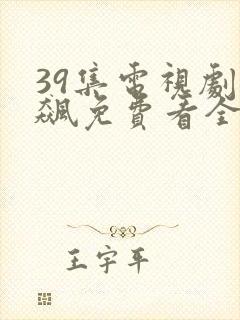 39集電視劇
飆免費看全
王宇平